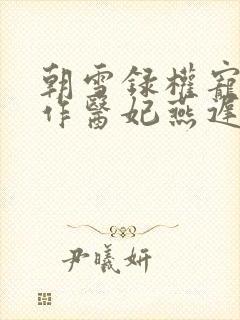 朝雪録權寵
作醫妃燕遲
尹曦妍